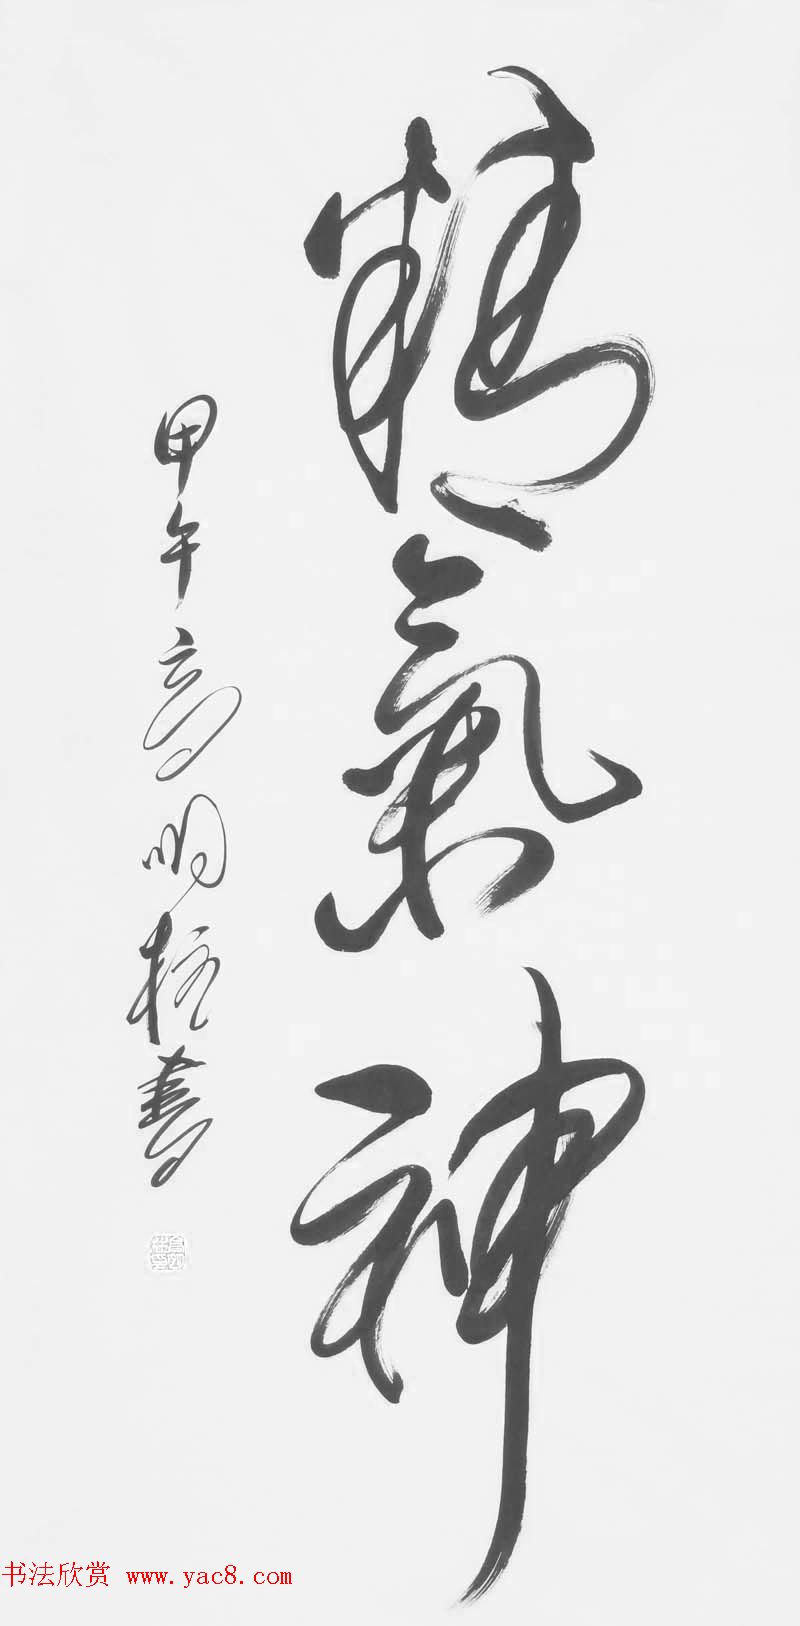 精氣神
甲午高明柱書
书法欣赏 www.yac8.com